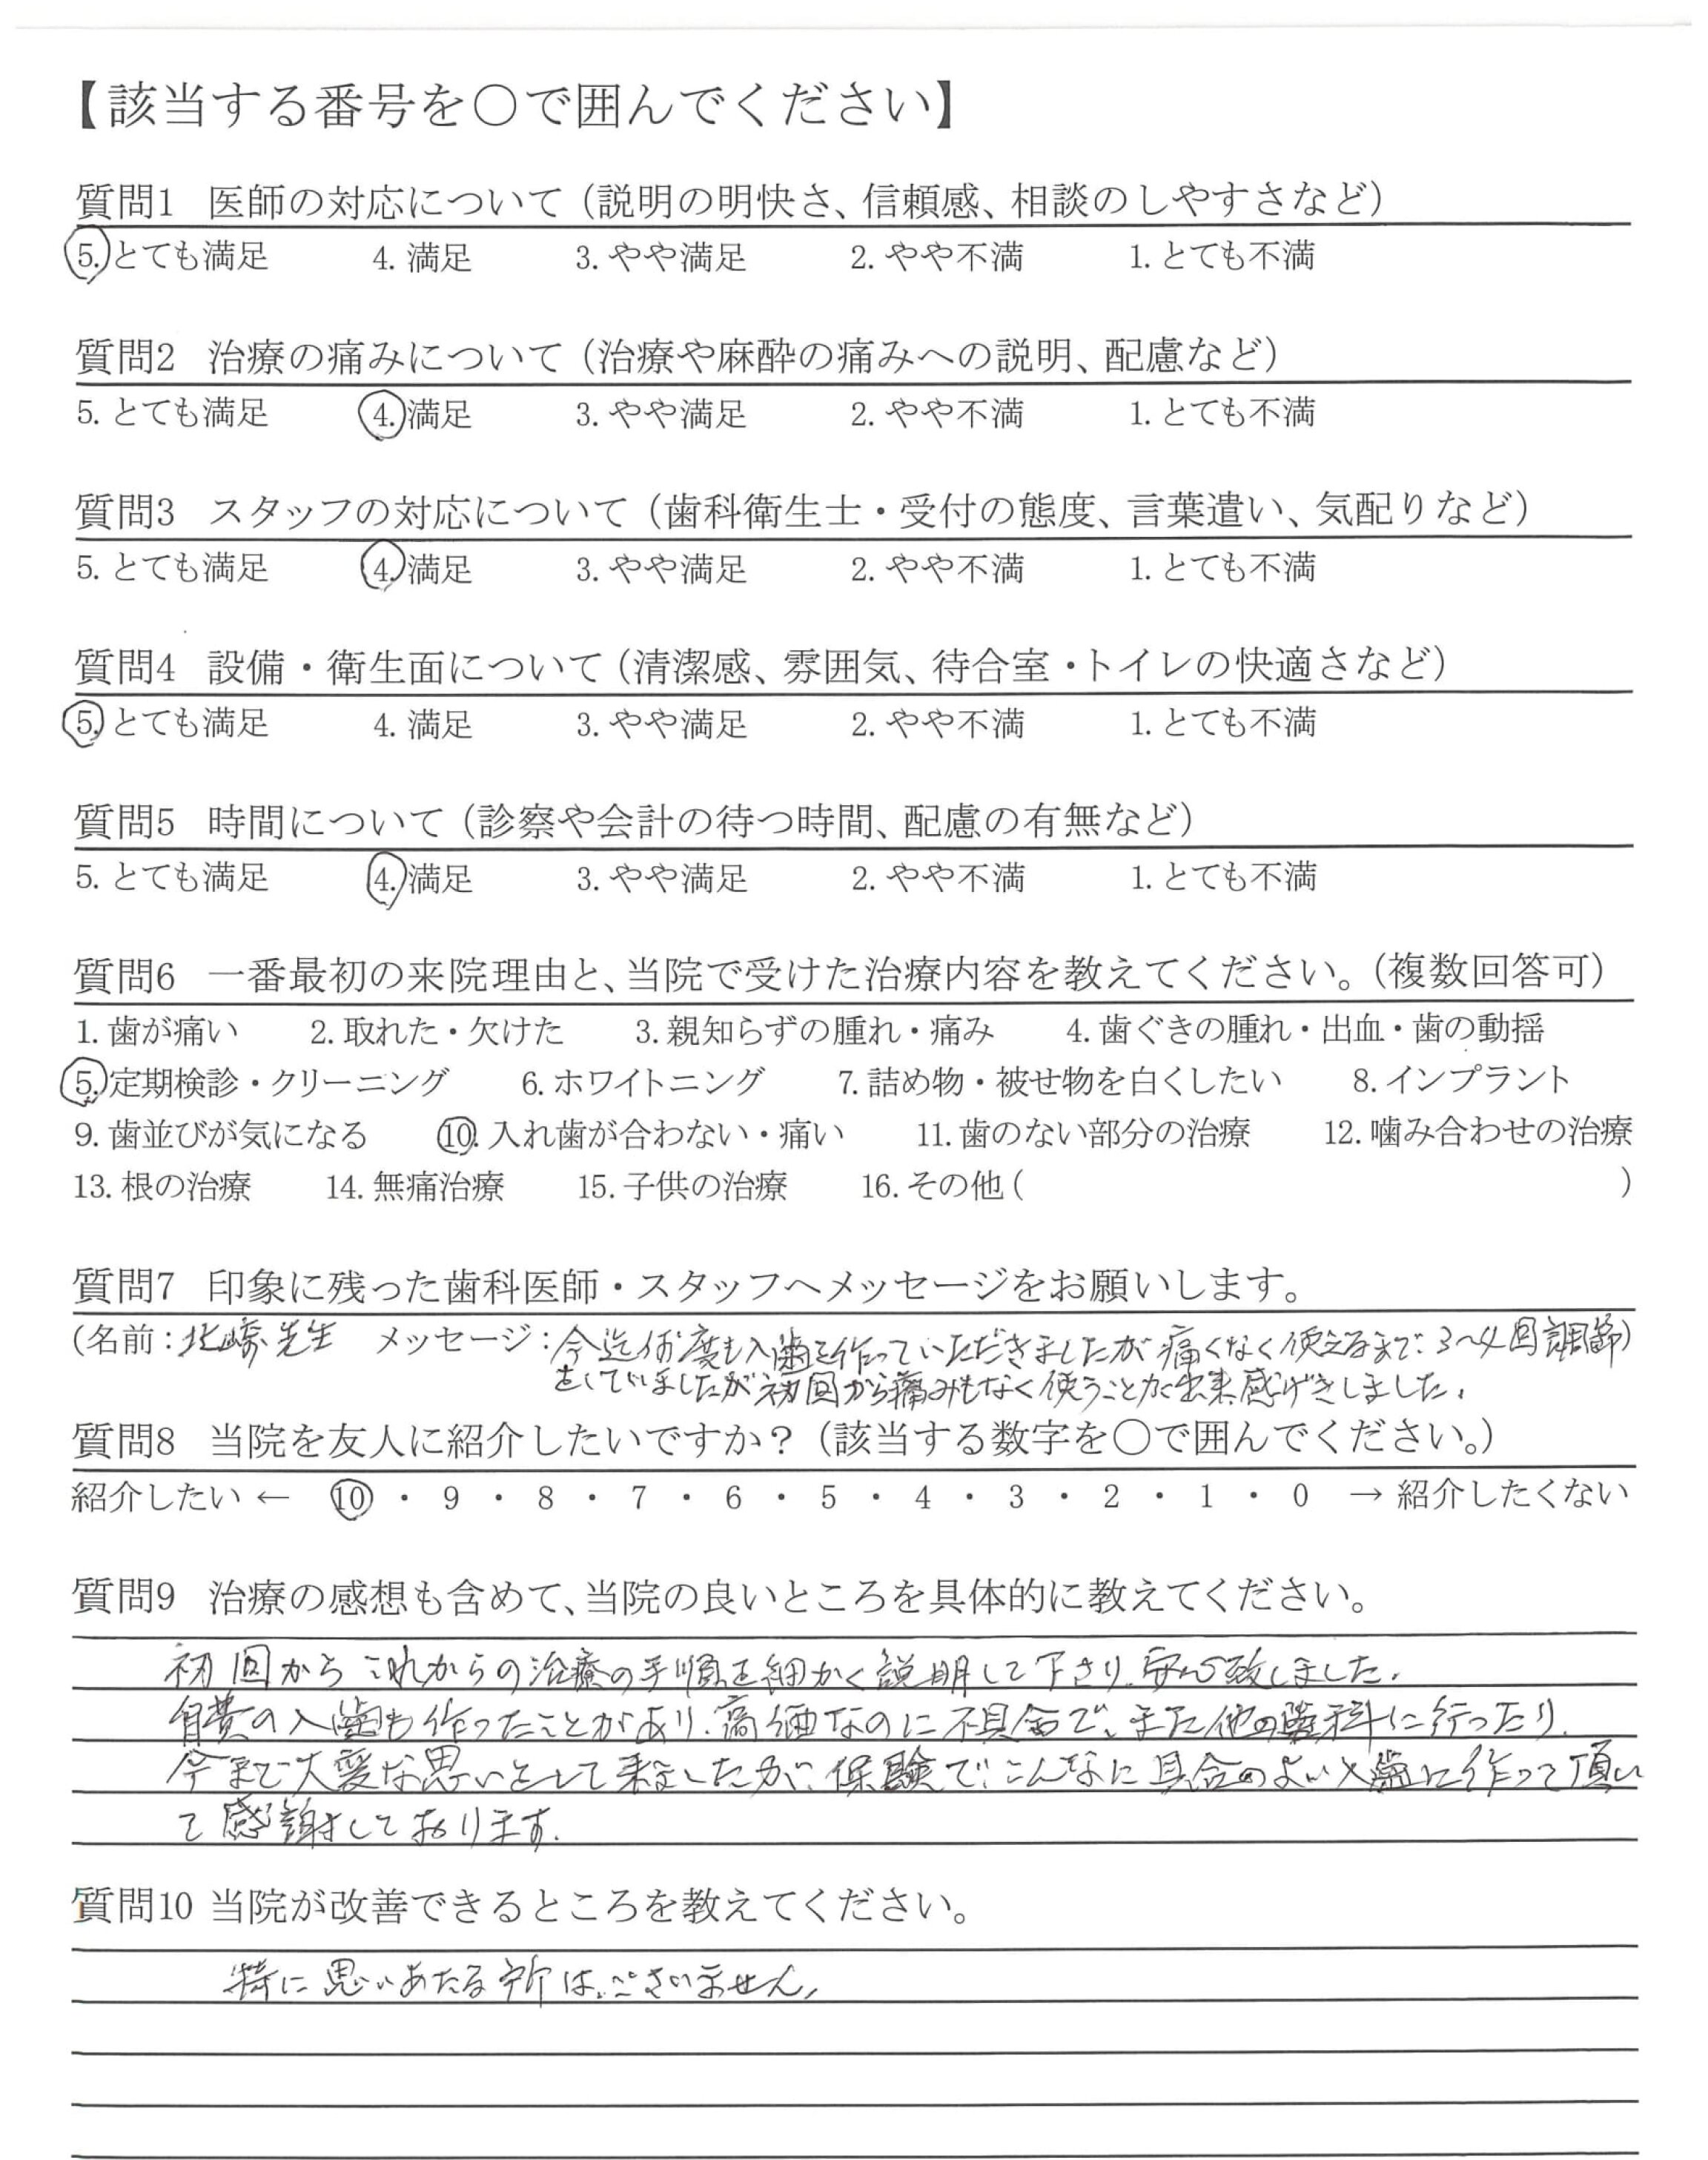 【該当する番号を〇で囲んでください】
質問1 医師の対応について（説明の明快さ、信頼感、相談のしやすさなど）
5. とても満足 4. 満足 3. やや満足 2. やや不満 1. とても不満
質問2 治療の痛みについて（治療や麻酔の痛みへの説明、配慮など）
5. とても満足 4. 満足 3. やや満足 2. やや不満 1. とても不満
質問3 スタッフの対応について（歯科衛生士・受付の態度、言葉遣い、気配りなど）
5. とても満足 4. 満足 3. やや満足 2. やや不満 1. とても不満
質問4 設備・衛生面について（清潔感、雰囲気、待合室・トイレの快適さなど）
5. とても満足 4. 満足 3. やや満足 2. やや不満 1. とても不満
質問5 時間について（診察や会計の待つ時間、配慮の有無など）
5. とても満足 4. 満足 3. やや満足 2. やや不満 1. とても不満
質問6 一番最初の来院理由と、当院で受けた治療内容を教えてください。（複数回答可）
1. 歯が痛い 2. 取れた・欠けた 3. 親知らずの腫れ・痛み 4. 歯ぐきの腫れ・出血・歯の動揺
5. 定期検診・クリーニング 6. ホワイトニング 7. 詰め物・被せ物を白くしたい 8. インプラント
9. 歯並びが気になる 10. 入れ歯が合わない・痛い 11. 歯のない部分の治療 12. 噛み合わせの治療
13. 根の治療 14. 無痛治療 15. 子供の治療 16. その他（ ）
質問7 印象に残った歯科医師・スタッフへメッセージをお願いします。
（名前：北崎先生 メッセージ：今迄何度も入歯を作っていただきましたが痛くなく使えるまで3〜4回調節）
をしていましたが初回から痛みもなく使うことが出来感げきしました。
質問8 当院を友人に紹介したいですか？（該当する数字を〇で囲んでください。）
紹介したい ← 10 ・ 9 ・ 8 ・ 7 ・ 6 ・ 5 ・ 4 ・ 3 ・ 2 ・ 1 ・ 0 → 紹介したくない
質問9 治療の感想も含めて、当院の良いところを具体的に教えてください。
初回からこれからの治療の手順を細かく説明して下さり、安心致しました。
自費の入歯も作ったことがあり、高価なのに不具合で、また他の歯科に行ったり、
今まで大変な思いをして来ましたが、保険で、こんなに具合のよい入歯に作って頂い
て感謝しております。
質問10 当院が改善できるところを教えてください。
特に思いあたる所は、ございません。